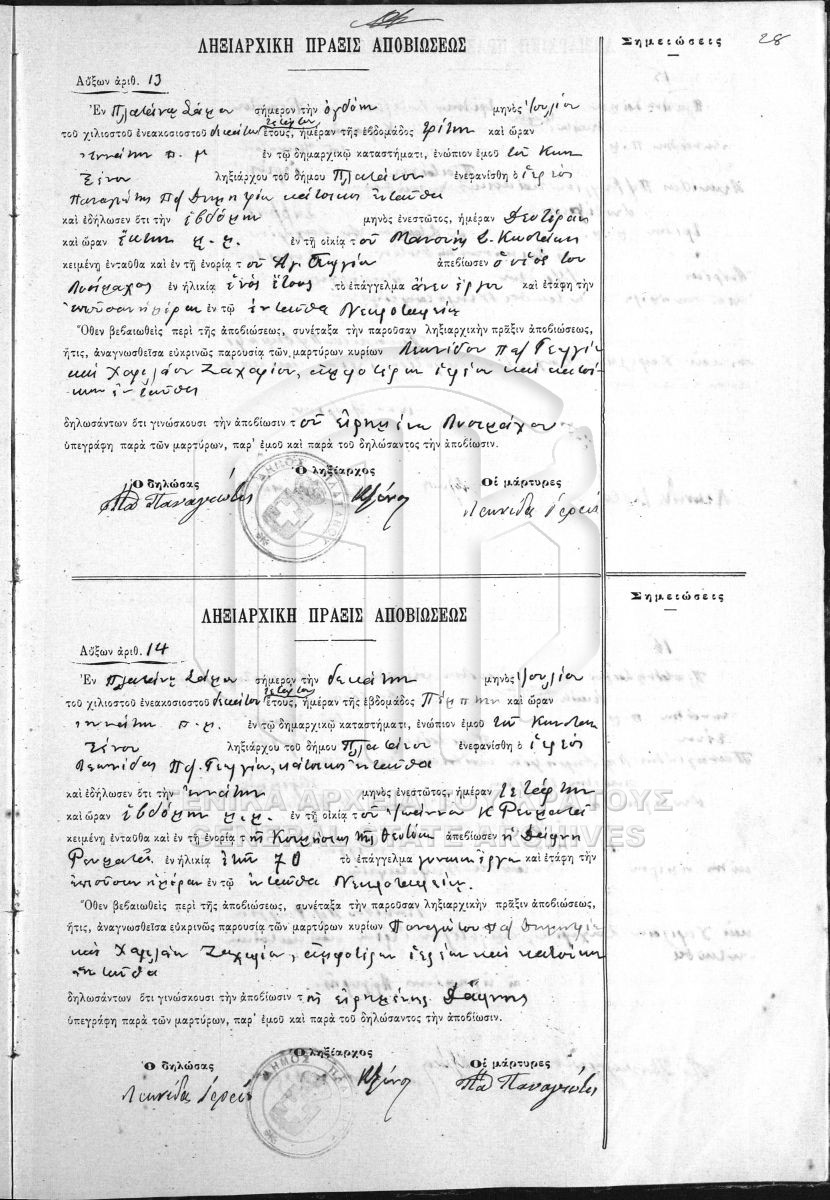 28
ΛΗΞΙΑΡΧΙΚΗ ΠΡΑΞΙΣ ΑΠΟΒΙΩΣΕΩΣ
Σημειώσεις
Αὔξων ἀριθ. 13
Ἐν Πλατάνῳ Σάμου σήμερον τὴν ὀγδόην μηνὸς Ἰουλίου
τοῦ χιλιοστοῦ ἐνεακοσιοστοῦ δεκάτου τετάρτου ἔτους, ἡμέραν τῆς ἑβδομάδος τρίτην καὶ ὥραν
ἐννάτην π. μ. ἐν τῷ δημαρχικῷ καταστήματι, ἐνώπιον ἐμοῦ τοῦ Κων
Ξένου ληξιάρχου τοῦ δήμου Πλατάνου ἐνεφανίσθη ὁ ἱερεὺς
Παναγιώτης Πδ Δημητρίου κάτοικος ἐνταῦθα
καὶ ἐδήλωσεν ὅτι τὴν ἑβδόμην μηνὸς ἐνεστῶτος, ἡμέραν Δευτέραν
καὶ ὥραν ἕκτην μ. μ. ἐν τῇ οἰκίᾳ τοῦ Μανουὴλ Κωστάκη
κειμένῃ ἐνταῦθα καὶ ἐν τῇ ἐνορίᾳ τοῦ Ἁγ. Γεωργίου ἀπεβίωσεν ὁ υἱός του
Λυσίμαχος ἐν ἡλικίᾳ ἑνὸς ἔτους τὸ ἐπάγγελμα ἄνευ ἔργου καὶ ἐτάφη τὴν
ἐπιοῦσαν ἡμέραν ἐν τῷ ἐνταῦθα Νεκροταφείῳ
Ὅθεν βεβαιωθεὶς περὶ τῆς ἀποβιώσεως, συνέταξα τὴν παροῦσαν ληξιαρχικὴν πρᾶξιν ἀποβιώσεως,
ἥτις, ἀναγνωσθεῖσα εὐκρινῶς παρουσίᾳ τῶν μαρτύρων κυρίων Λεωνίδου Πδ Γεωργίου
καὶ Χαριλάου Ζαχαρίου, ἀμφοτέρων ἱερέων καὶ κατοί
κων ἐνταῦθα
δηλωσάντων ὅτι γινώσκουσι τὴν ἀποβίωσιν τοῦ εἰρημένου Λυσιμάχου
ὑπεγράφη παρὰ τῶν μαρτύρων, παρ' ἐμοῦ καὶ παρὰ τοῦ δηλώσαντος τὴν ἀποβίωσιν.
Ὁ δηλώσας Ὁ ληξίαρχος Οἱ μάρτυρες
Πδ Παναγιώτης ΚΞένος Λεωνίδα Ἱερεύς
ΔΗΜΟΣ ΠΛΑΤΑΝΟΥ
ΛΗΞΙΑΡΧΙΚΗ ΠΡΑΞΙΣ ΑΠΟΒΙΩΣΕΩΣ
Σημειώσεις
Αὔξων ἀριθ. 14
Ἐν Πλατάνῳ Σάμου σήμερον τὴν δεκάτην μηνὸς Ἰουλίου
τοῦ χιλιοστοῦ ἐνεακοσιοστοῦ δεκάτου τετάρτου ἔτους, ἡμέραν τῆς ἑβδομάδος Πέμπτην καὶ ὥραν
ἐννάτην π. μ. ἐν τῷ δημαρχικῷ καταστήματι, ἐνώπιον ἐμοῦ τοῦ Κωνστ
Ξένου ληξιάρχου τοῦ δήμου Πλατάνου ἐνεφανίσθη ὁ ἱερεὺς
Λεωνίδας Πδ. Γεωργίου, κάτοικος ἐνταῦθα
καὶ ἐδήλωσεν ὅτι τὴν ἐννάτην μηνὸς ἐνεστῶτος, ἡμέραν τετάρτην
καὶ ὥραν ἑβδόμην μ.μ. ἐν τῇ οἰκίᾳ τοῦ Ἰωάννου Κ
ΓΕΝΙΚΑ ΑΡΧΕΙΑ ΤΟΥ ΚΡΑΤΟΥΣ
κειμένῃ ἐνταῦθα καὶ ἐν τῇ ἐνορίᾳ τῆς Κοιμήσεως τῆς Θεοτόκου ἀπεβίωσεν ἡ Δάφνη
GENERAL STATE ARCHIVES
ἐν ἡλικίᾳ ἐτῶν 70 τὸ ἐπάγγελμα γυναικ ἔργα καὶ ἐτάφη τὴν
ἐπιοῦσαν ἡμέραν ἐν τῷ ἐνταῦθα Νεκροταφείῳ.
Ὅθεν βεβαιωθεὶς περὶ τῆς ἀποβιώσεως, συνέταξα τὴν παροῦσαν ληξιαρχικὴν πρᾶξιν ἀποβιώσεως,
ἥτις, ἀναγνωσθεῖσα εὐκρινῶς παρουσίᾳ τῶν μαρτύρων κυρίων Παναγιώτου Πδ Δημητρίου
καὶ Χαριλάου Ζαχαρίου, ἀμφοτέρων ἱερέων καὶ κατοίκων
ἐνταῦθα
δηλωσάντων ὅτι γινώσκουσι τὴν ἀποβίωσιν τῆς εἰρημένης Δάφνης
ὑπεγράφη παρὰ τῶν μαρτύρων, παρ' ἐμοῦ καὶ παρὰ τοῦ δηλώσαντος τὴν ἀποβίωσιν.
Ὁ δηλώσας Ὁ ληξίαρχος Οἱ μάρτυρες
Λεωνίδα Ἱερεύς ΚΞένος Πδ Παναγιώτης
ΔΗΜΟΣ ΠΛΑΤΑΝΟΥ